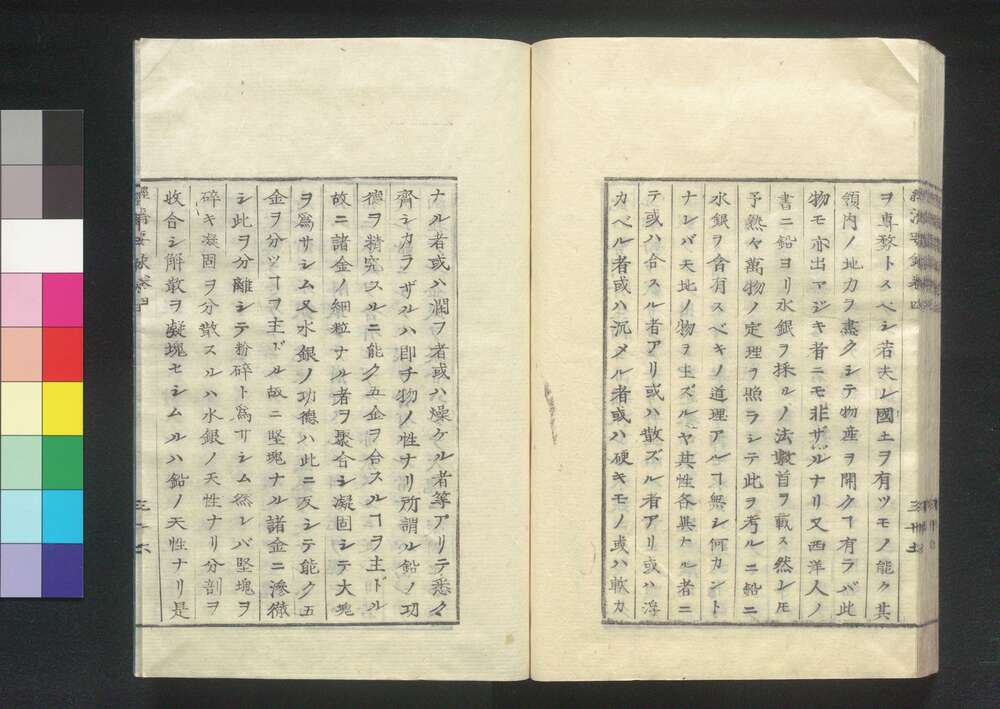 ヲ専務トスベシ若夫レ國土ヲ有ツモノ能ク其
領内ノ地力ヲ盡クシテ物産ヲ開クヿ有ラバ此
物モ亦出マジキ者ニモ非ザルナリ又西洋人ノ
書ニ鉛ヨリ水銀ヲ採ルノ法數首ヲ載ス然レ𪜈
予熟ヤ萬物ノ定理ヲ照ラシテ此ヲ考ルニ鉛ニ
水銀ヲ含有スベキノ道理アルヿ無シ何カントナレバ
ナレバ天地ノ物ヲ生ズルヤ其性各異ナル者ニ
テ或ハ合スル者アリ或ハ散ズル者アリ或ハ浮
カベル者或ハ沉メル者或ハ硬キモノ或ハ軟カ
ナル者或ハ濶ヲ者或ハ燥ケル者等アリテ悉々
齊シカラザルハ即チ物ノ性ナリ所謂ル鉛ノ功
德ヲ精究スルニ能ク五金ヲ合スルヿヲ主ドル
故ニ諸金ノ細粒ナル者ヲ聚合シ凝固シテ大塊
ヲ為サシム又水銀ノ功德ハ此ニ反シテ能ク五
金ヲ分ツヿヲ主ドル故ニ堅塊ナル諸金ニ滲徹
シ此ヲ分離シテ粉碎ト為サシム然レバ堅塊ヲ
碎キ凝固ヲ分散スルハ水銀ノ天性ナリ分剖ヲ
收合シ解散ヲ凝塊セシムルハ鉛ノ天性ナリ是
經濟要録卷四
三十六